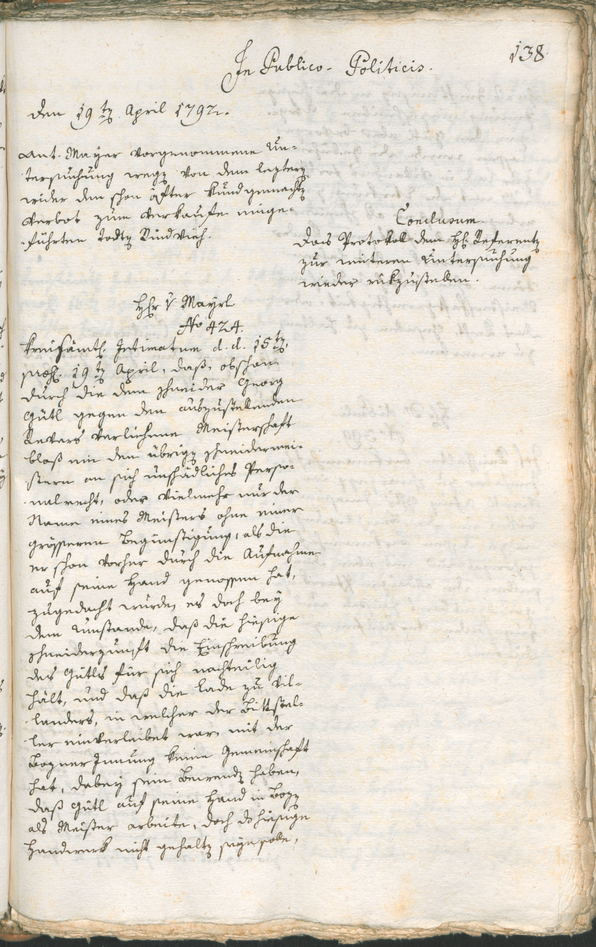 138
In Publico-Politicis.
den 19ten April 1792.
Ant. Mayer vorgenommene Un-
tersuchung wegen von dem leztern
wider den schon öfter kundgemachten
Verbot zum Verkaufe einge-
führten todten Rindvieh.
Conclusum
Das Protokoll dem H. Referenten
zur weiteren Untersuchung
wieder rükzustellen.
Hr. v. Mayrl
No 424.
Kreisämtl. Intimatum d. d. 15ten
præs. 19ten April, daß, obschon
durch die dem Schneider Georg
Gütl gegen den auszustellenden
Revers verliehene Meisterschaft
bloß ein den übrigen Schneidermei-
stern an sich unschädliches Perso-
nalrecht, oder vielmehr nur der
Name eines Meisters ohne einer
grösseren Begünstigung, als die
er schon vorher durch die Aufnahme
auf seine Hand genossen hat,
zugedacht wurde, es doch bey
dem Umstande, daß die hiesige
Schneiderzunft die Einschreibung
des Gütls für sich nachteilig
hält, und daß die Lade zu Vil-
landers, in welcher der Bittstel-
ler einverleibet war, mit der
Bozner Innung keine Gemeinschaft
hat, dabey sein Bewenden haben,
daß Gütl auf seine Hand in Bozen
als Meister arbeite, doch das hiesige
Handwerk nicht gehalten seyn solle,